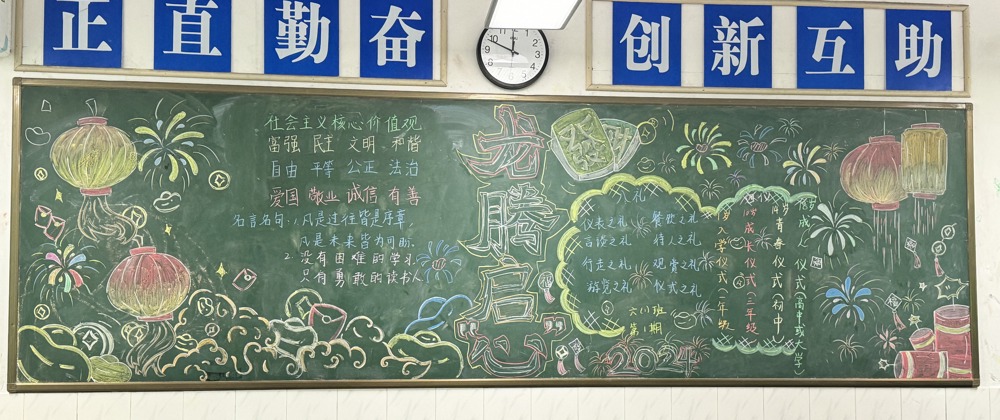 正直勤奋
创新互助
社会主义核心价值观
富强 民主 文明 和谐
自由 平等 公正 法治
爱国 敬业 诚信 友善
名言名句:1.凡是过往皆是序章,
凡是未来皆为可盼.
2.没有困难的学习,
只有勇敢的读书人
龙腾启
八礼
仪表之礼 餐饮之礼
言谈之礼 待人之礼
行走之礼 观赏之礼
游览之礼 仪式之礼
入学仪式(一年级)
成长仪式(三年级)
青春仪式(初中)
成人仪式(高中或大学)
六(1)班
第1期
2024